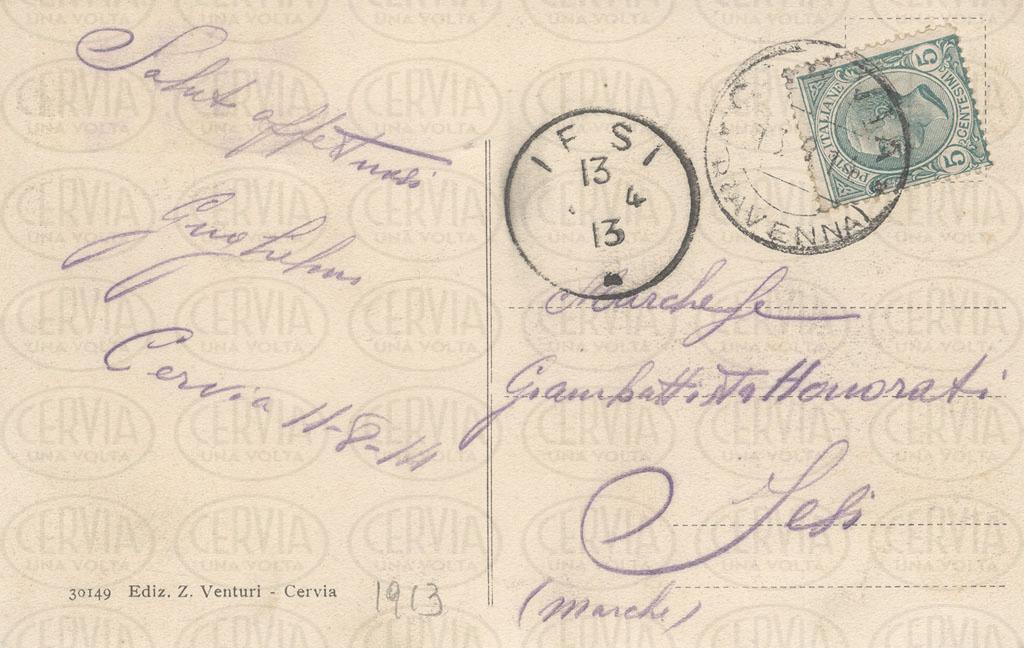 Saluti affettuosi
Guglielmo
Cervia 11-8-14
30149 Ediz. Z. Venturi - Cervia
1913
POSTE ITALIANE
CENTESIMI
5
5
(RAVENNA)
IESI
13
4
13
Marchese
Giambattista Honorati
Jesi
(Marche)
CERVIA
UNA VOLTA